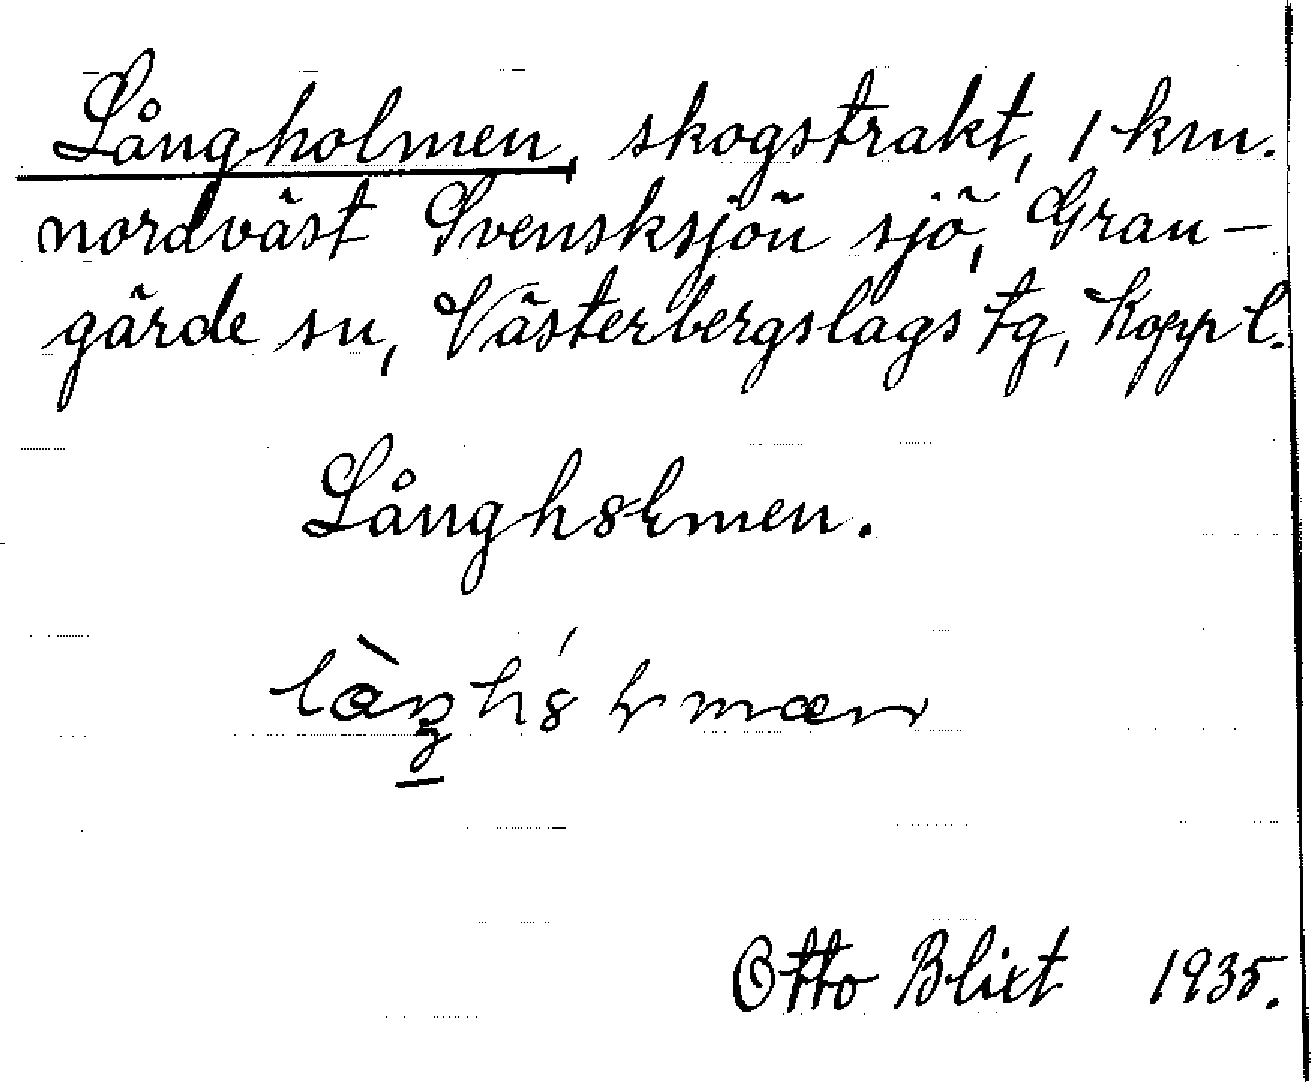 Långholmen, skogstrakt, 1 km.
nordväst Svensksjön sjö, Gran-
gärde sn, Västerbergslags tg, Kopp l.
Långh8lmen.
Otto Blixt 1935.